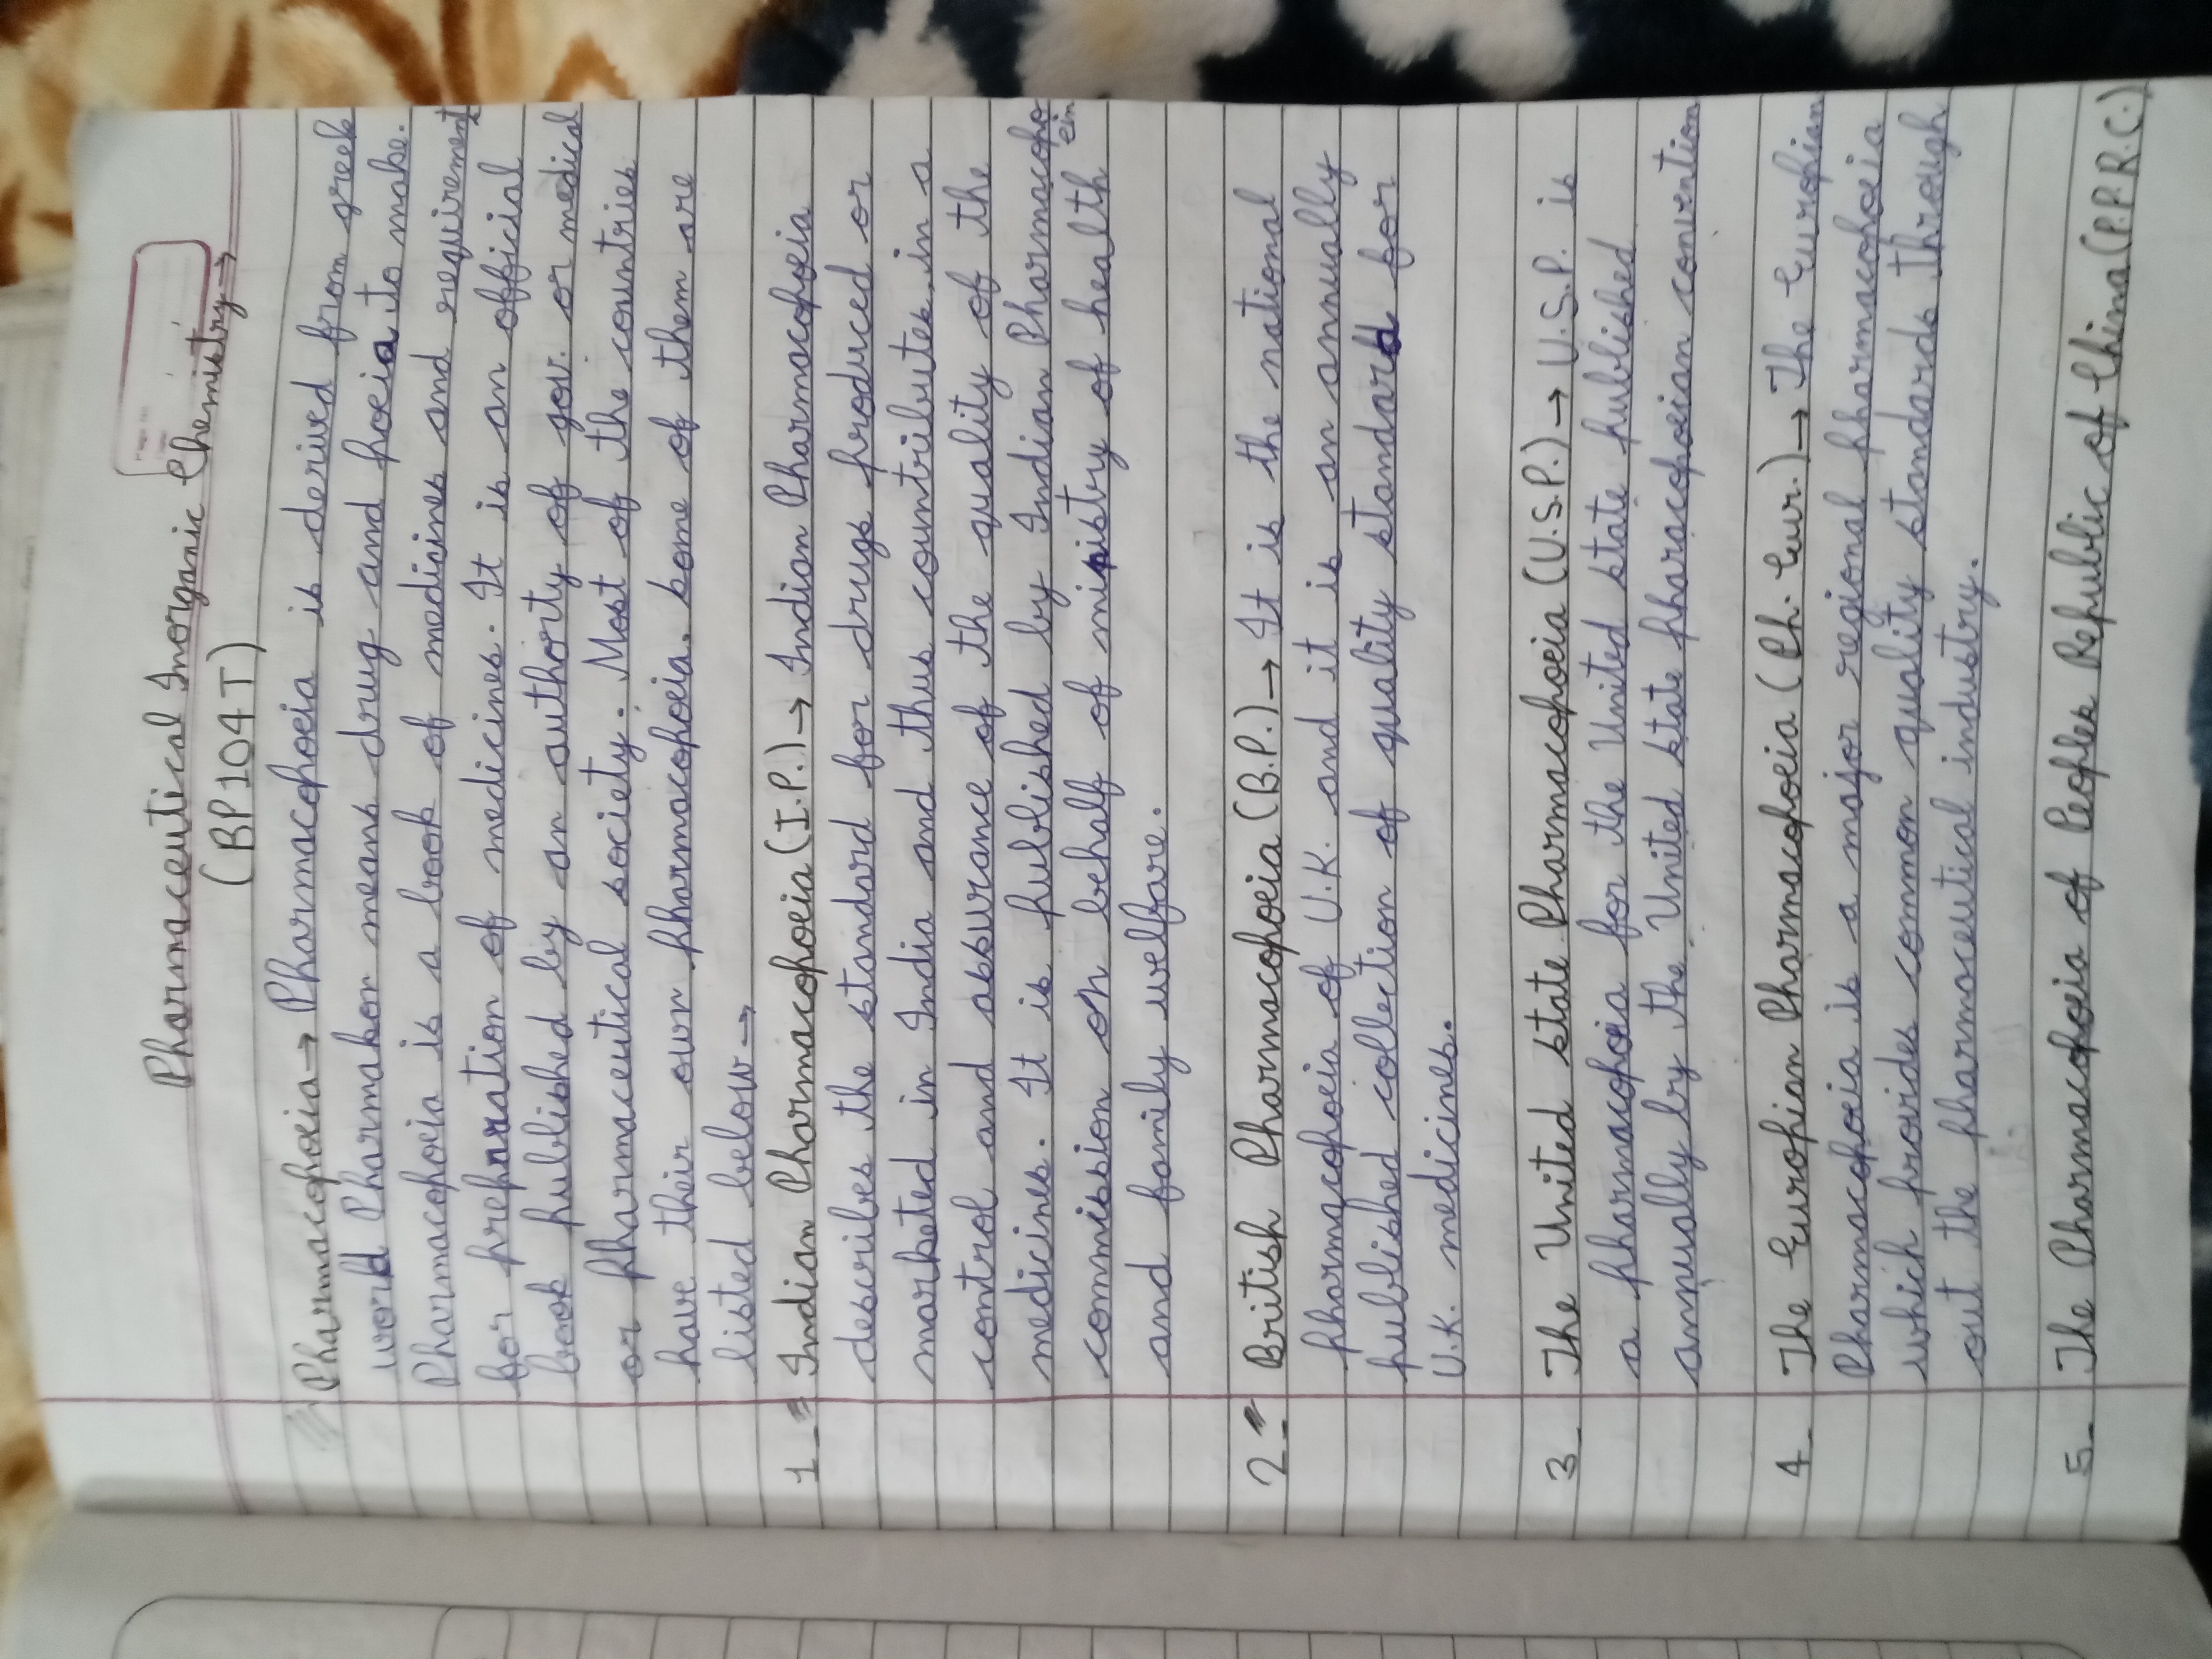 Pharmaceutical Inorganic Chemistry→
(BP104T)
Pharmacopoeia→ Pharmacopoeia is derived from greek
word Pharmakon means drug and poeia to make.
Pharmacopoeia is a book of medicines and requirement
for preparation of medicines. It is an official
book published by an authorty of gov. or medical
or pharmaceutical society. Most of the countries
have their own pharmacopoeia. some of them are
listed below→
1- Indian Pharmacopoeia (I.P.)→ Indian Pharmacopoeia
describes the standard for drugs produced or
marketed in India and thus countributes in a
control and assurance of the quality of the
medicines. It is published by Indian Pharmacopo
ein
commission on behalf of ministry of health
and family welfare.
2- British Pharmacopoeia (B.P.)→ It is the national
pharmacopoeia of U.K. and it is an annually
published collection of quality standard for
U.K. medicines.
3- The United state Pharmacopoeia (U.S.P.)→ U.S.P. is
a pharmacopoeia for the United state published
annually by the United state pharacopoeian convention
4- The Europian Pharmacopoeia (Ph. Eur.)→ The Europian
Pharmacopoeia is a major regional pharmacopoeia
which provides common quality standards through
out the pharmaceutical industry.
5- The Pharmacopoeia of Peoples Republic of China (P.P.R.C.)